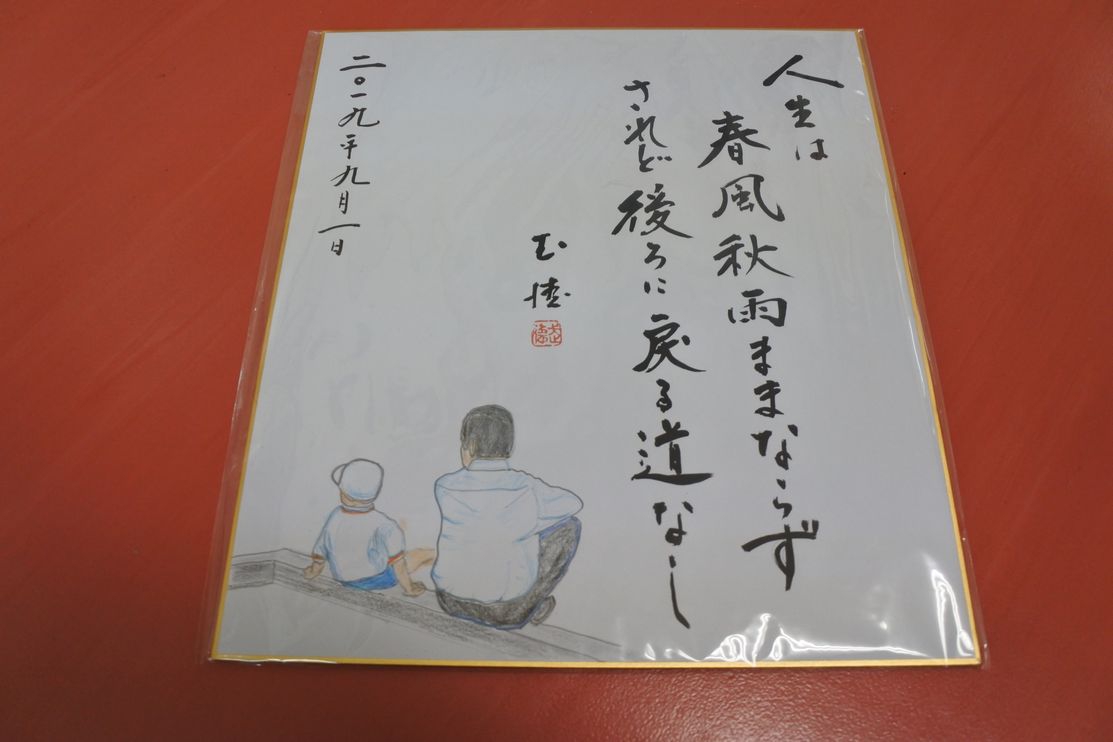 人生は
春風秋雨ままならず
されど後ろに戻る道なし
二〇一九年九月一日